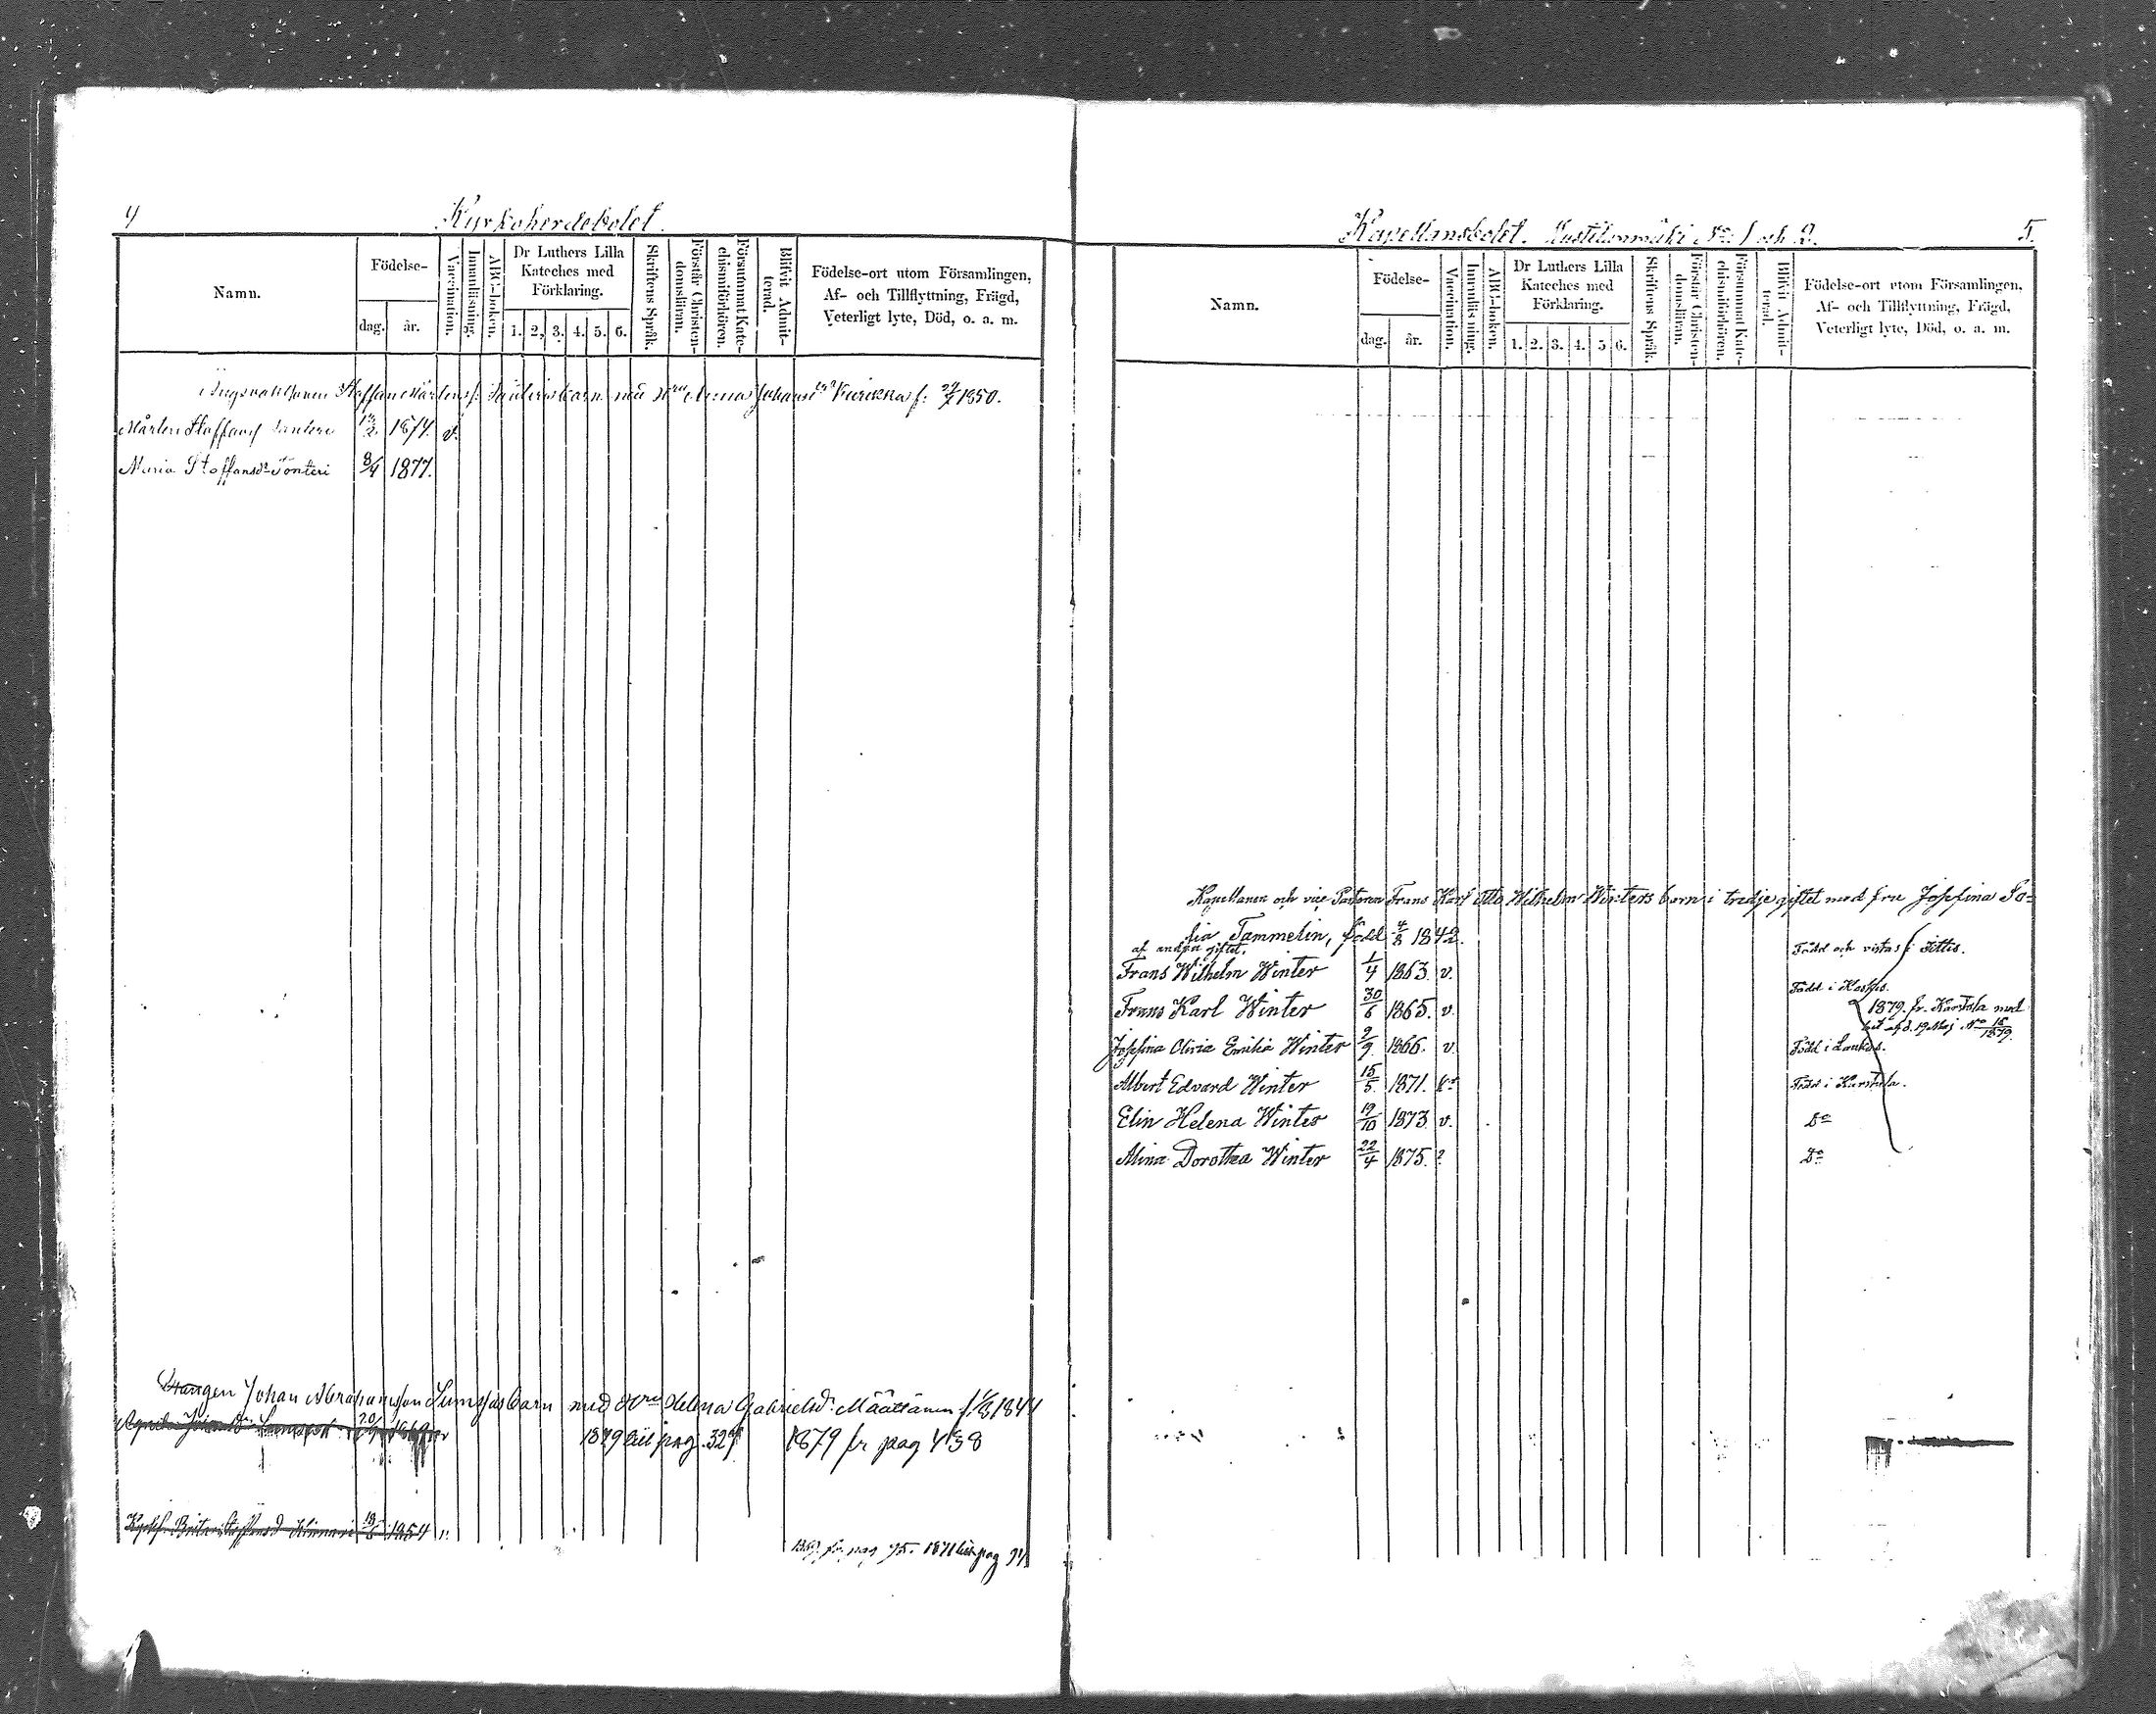 4
Kyrkoherdebolet.
Namn.
Födelse-
dag.
år.
Vaccination.
Innanläsning.
ABC-boken.
Dr Luthers Lilla
Kateches med
Förklaring.
1. 2. 3. 4. 5. 6.
Skriftens Språk.
Förstår Christen-
domsläran.
Försummat Kate-
chismiförhören.
Blifvit Admit-
terad.
Födelse-ort utom Församlingen,
Af- och Tillflyttning, Frägd,
Veterligt lyte, Död, o. a. m.
Staffan Mårtensf. barn med Anna Johansdr f. 1850.
Mårten Staffansf 1874. v.
Maria Staffansdr Sönteri 8/4 1877.
Drängen Johan Abrahamsson barn med Helena Gabrielsd. Määttänen f. 1844
1869
1879 till pag. 327
1879 fr pag 438
1854 v.
fr. pag 75. 1871 till pag
Kapellansbolet. No 1 och 2.
5.
Namn.
Födelse-
dag.
år.
Vaccination.
Innanläsning.
ABC-boken.
Dr Luthers Lilla
Kateches med
Förklaring.
1. 2. 3. 4. 5. 6.
Skriftens Språk.
Förstår Christen-
domsläran.
Försummat Kate-
chismiförhören.
Blifvit Admit-
terad.
Födelse-ort utom Församlingen,
Af- och Tillflyttning, Frägd,
Veterligt lyte, Död, o. a. m.
Kapellanen och vice Pastoren Frans Karl Otto Wilhelm Winters barn i tredje giftet med fru Josefina So-
fia Tammelin, född 4/8 1842.
af andra giftet.
Frans Wilhelm Winter 1/4 1863. v. Född och vistas i Jittis.
Frans Karl Winter 30/6 1865. v. Född i
1879. fr. Karstula med
bet. af d. 19 Maj No 15/1879.
Josefina Olivia Emilia Winter 2/9 1866. v. Född i
Albert Edvard Winter 15/5 1871. Född i Karstula.
Elin Helena Winter 19/10 1873. v. Do
Alina Dorothea Winter 22/4 1875. ? Do